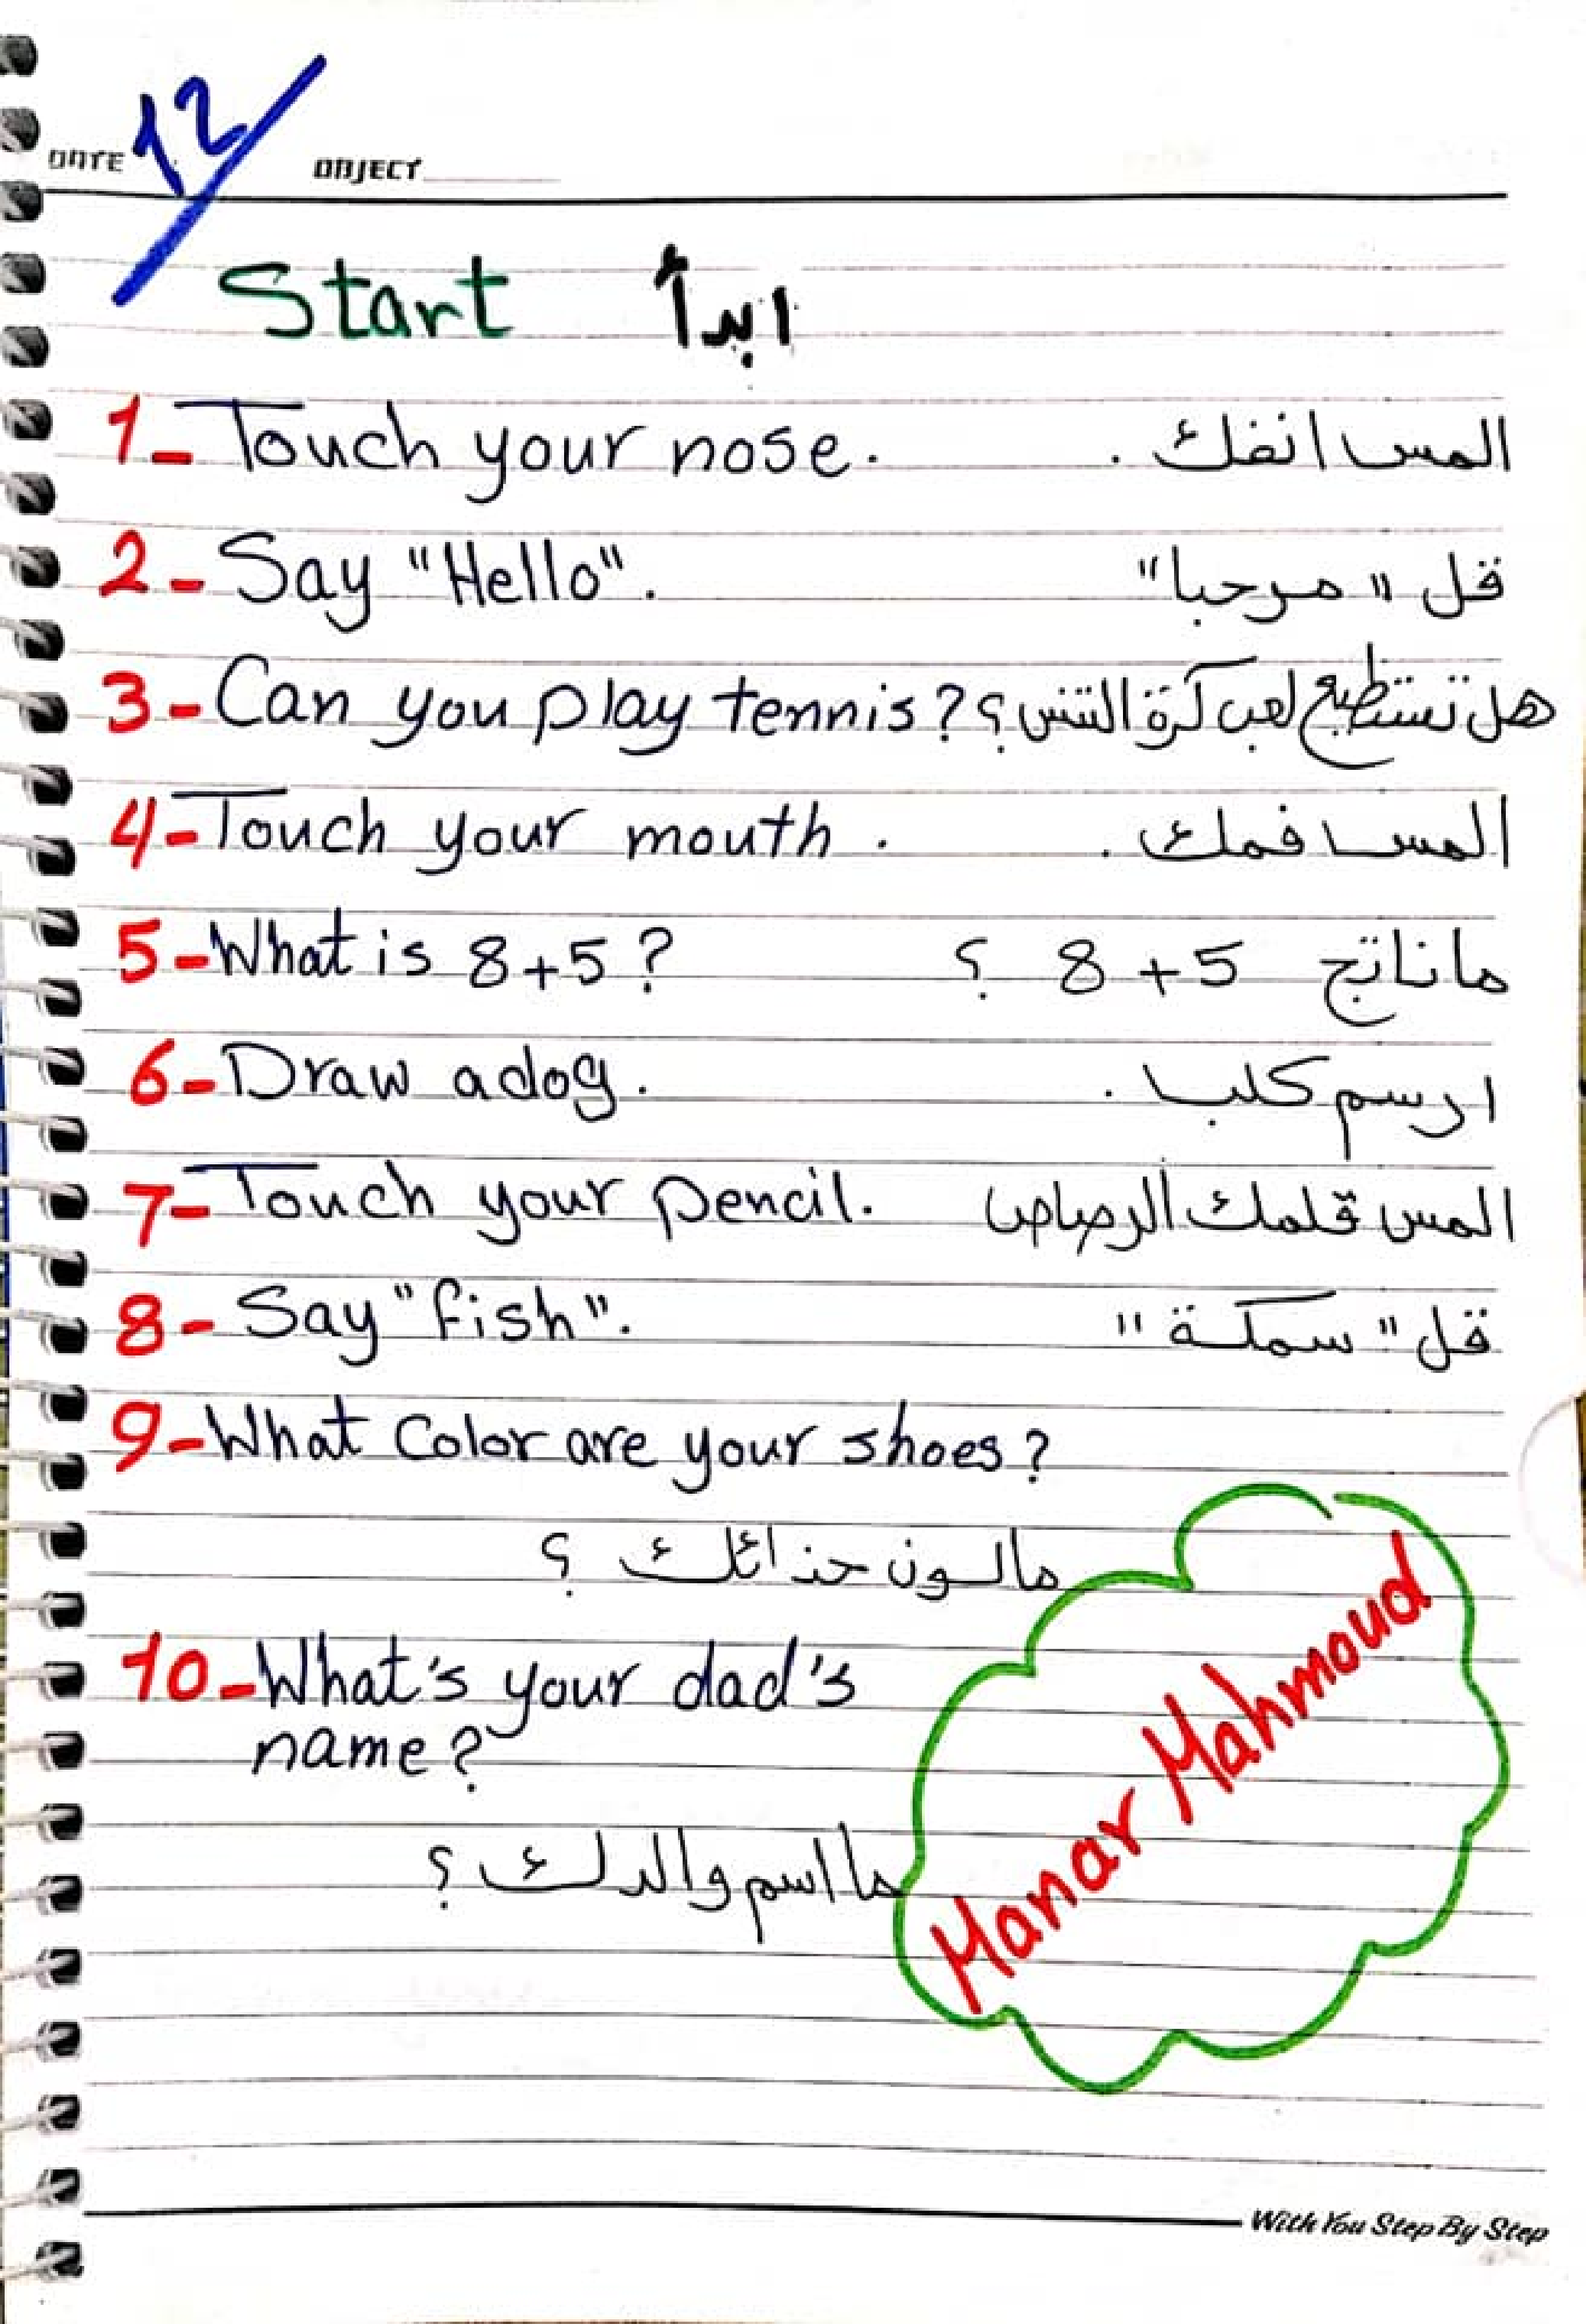 12/
DATE OBJECT
Start ابدأ
1- Touch your nose. المس انفك .
2- Say "Hello". قل "مرحبا"
3- Can you play tennis? هل تستطيع لعب كرة التنس ؟
4- Touch your mouth . المس فمك .
5- What is 8+5? ما ناتج 5+8 ؟
6- Draw a dog. ارسم كلب .
7- Touch your pencil. المس قلمك الرصاص
8- Say "fish". قل "سمكة"
9- What color are your shoes?
ما لون حذائك ؟
10- What's your dad's
name?
ما اسم والدك ؟
Manar Mahmoud
With You Step By Step